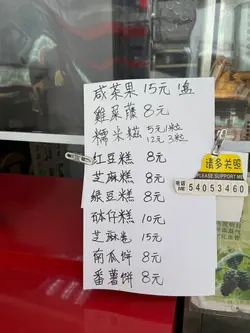 咸茶果 15元 1盒
雞屎藤 8元
糯米糍 5元1粒
12元3粒
紅豆糕 8元
芝麻糕 8元
綠豆糕 8元
砵仔糕 10元
芝麻卷 15元
南瓜饼 8元
番薯饼 8元
请多关照
PLEASE SUPPORT ME
540534600